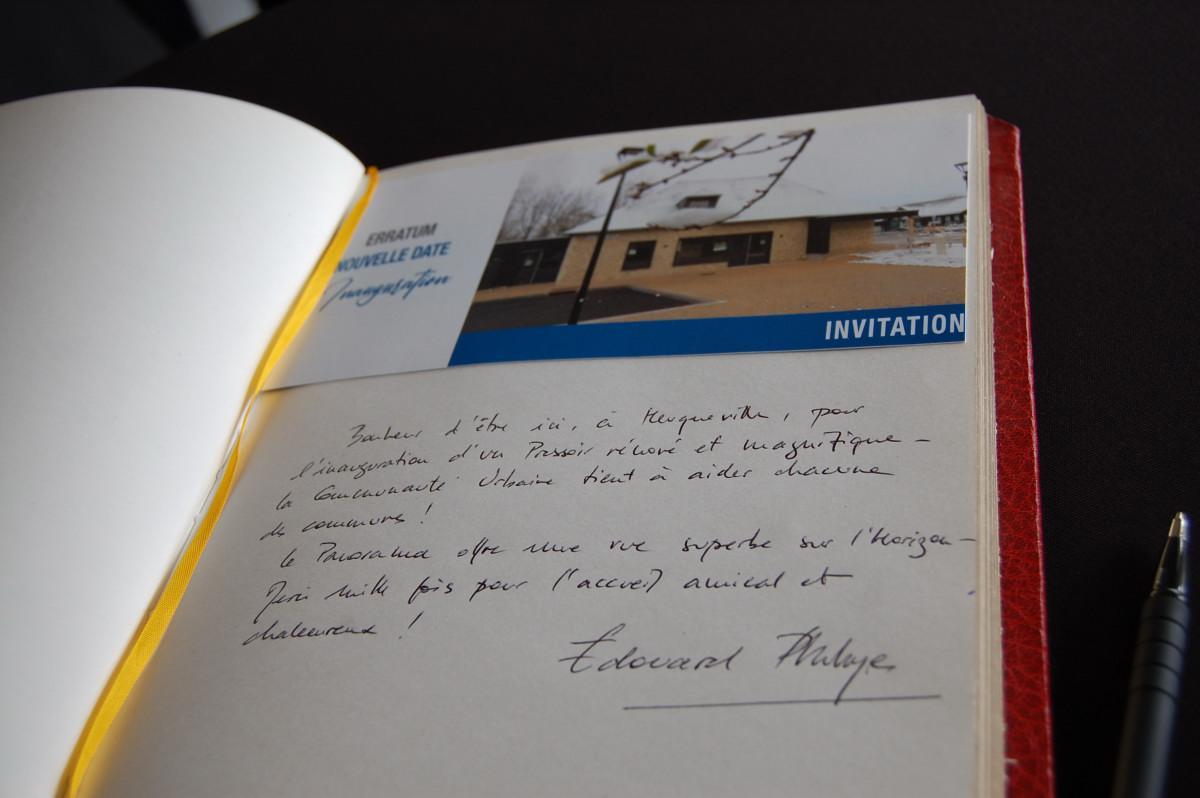 ERRATUM
NOUVELLE DATE
Inauguration
INVITATION
Bonheur d'être ici, à Herqueville, pour
l'inauguration d'un Pressoir rénové et magnifique -
la Communauté Urbaine tient à aider chacune
des communes !
Le Panorama offre une vue superbe sur l'Horizon -
Merci mille fois pour l'accueil amical et
chaleureux !
Edouard Philippe